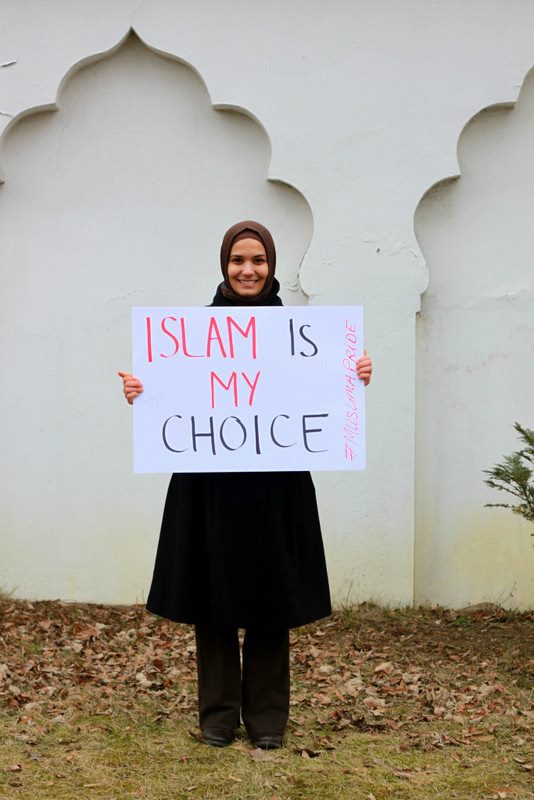 ISLAM IS
MY
CHOICE
#MUSLIMAPRIDE